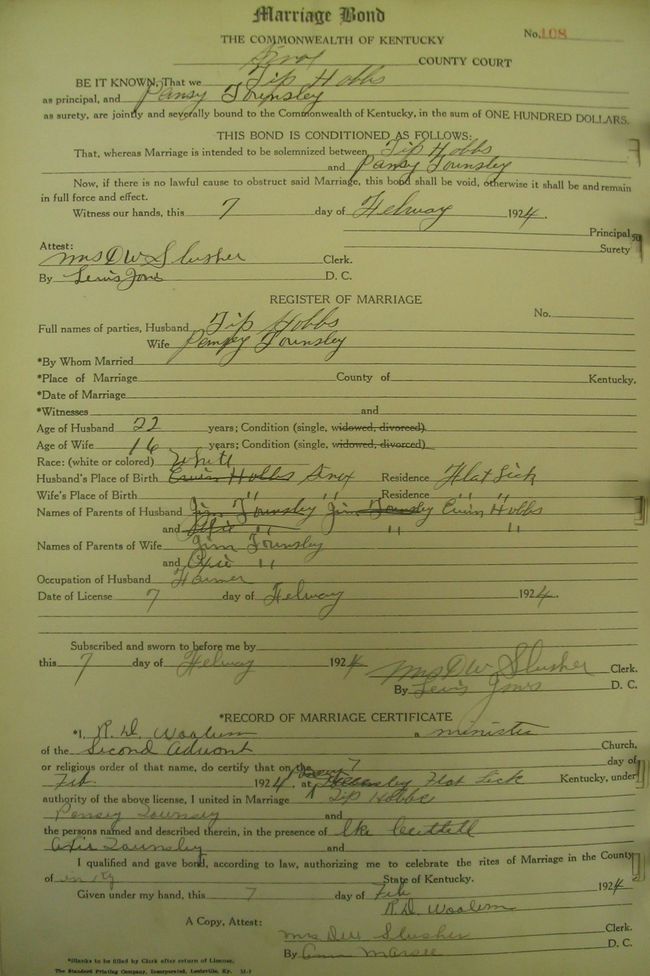 Marriage Bond
THE COMMONWEALTH OF KENTUCKY
No. 108
Knox COUNTY COURT
BE IT KNOWN, That we Tip Hobbs
as principal, and Pansy Tounsley
as surety, are jointly and severally bound to the Commonwealth of Kentucky, in the sum of ONE HUNDRED DOLLARS.
THIS BOND IS CONDITIONED AS FOLLOWS:
That, whereas Marriage is intended to be solemnized between Tip Hobbs
and Pansy Tounsley
Now, if there is no lawful cause to obstruct said Marriage, this bond shall be void, otherwise it shall be and remain
in full force and effect.
Witness our hands, this 7 day of Februay 1924.
Principal
Surety
Attest:
Mrs D W Slusher Clerk.
By Lewis Jones D. C.
REGISTER OF MARRIAGE
No.
Full names of parties, Husband Tip Hobbs
Wife Pansy Tounsley
*By Whom Married
*Place of Marriage County of Kentucky.
*Date of Marriage
*Witnesses and
Age of Husband 22 years; Condition (single, widowed, divorced)
Age of Wife 16 years; Condition (single, widowed, divorced)
Race: (white or colored) White
Husband's Place of Birth Hobbs Knox Residence Flat Lick
Wife's Place of Birth " " Residence " "
Names of Parents of Husband Jim Tounsley Jim Tounsley Hobbs
and " " "
Names of Parents of Wife Jim Tounsley
and "
Occupation of Husband Farmer
Date of License 7 day of Februay 1924.
Subscribed and sworn to before me by
this 7 day of Februay 1924 Mrs D W Slusher Clerk.
By Lewis Jones D. C.
*RECORD OF MARRIAGE CERTIFICATE
*I, R. D. Woolum a minister
of the Second Advent Church,
or religious order of that name, do certify that on the 7 day of
Feb. 1924, at Flat Lick Kentucky, under
authority of the above license, I united in Marriage Tip Hobbs
Pensey Tounsey and
the persons named and described therein, in the presence of Ike
Tounsley and
I qualified and gave bond, according to law, authorizing me to celebrate the rites of Marriage in the County
of in Ky State of Kentucky.
Given under my hand, this 7 day of Feb 1924
R. D. Woolum
A Copy, Attest:
Mrs DW Slusher Clerk.
By Marsee D. C.
*Blanks to be filled by Clerk after return of License.
The Standard Printing Company, Incorporated, Louisville, Ky.